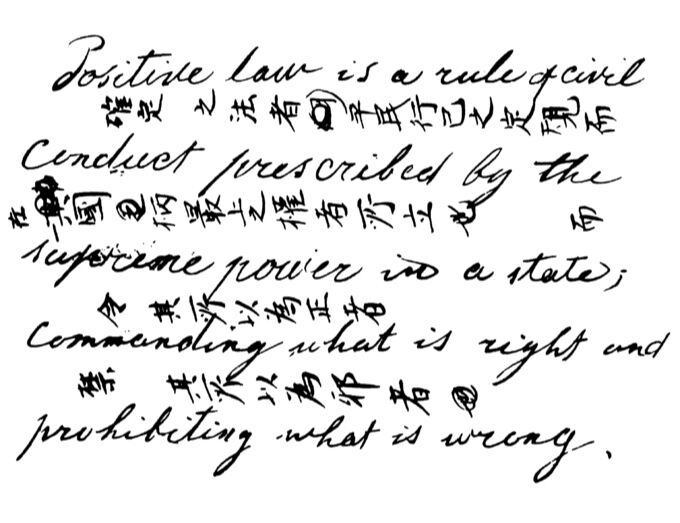 Positive law is a rule of civil
確定 之 法 者 民行己之定規而
Conduct prescribed by the
在 國 內最上之權者所立 而
supreme power in a state;
令 其所以為正者
Commanding what is right and
禁 其所以為邪者
prohibiting what is wrong.